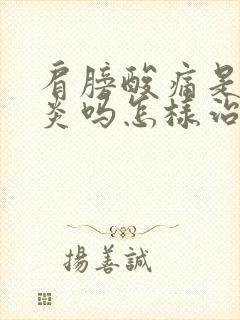 肩膀酸痛是
炎吗怎样治
揚善誠